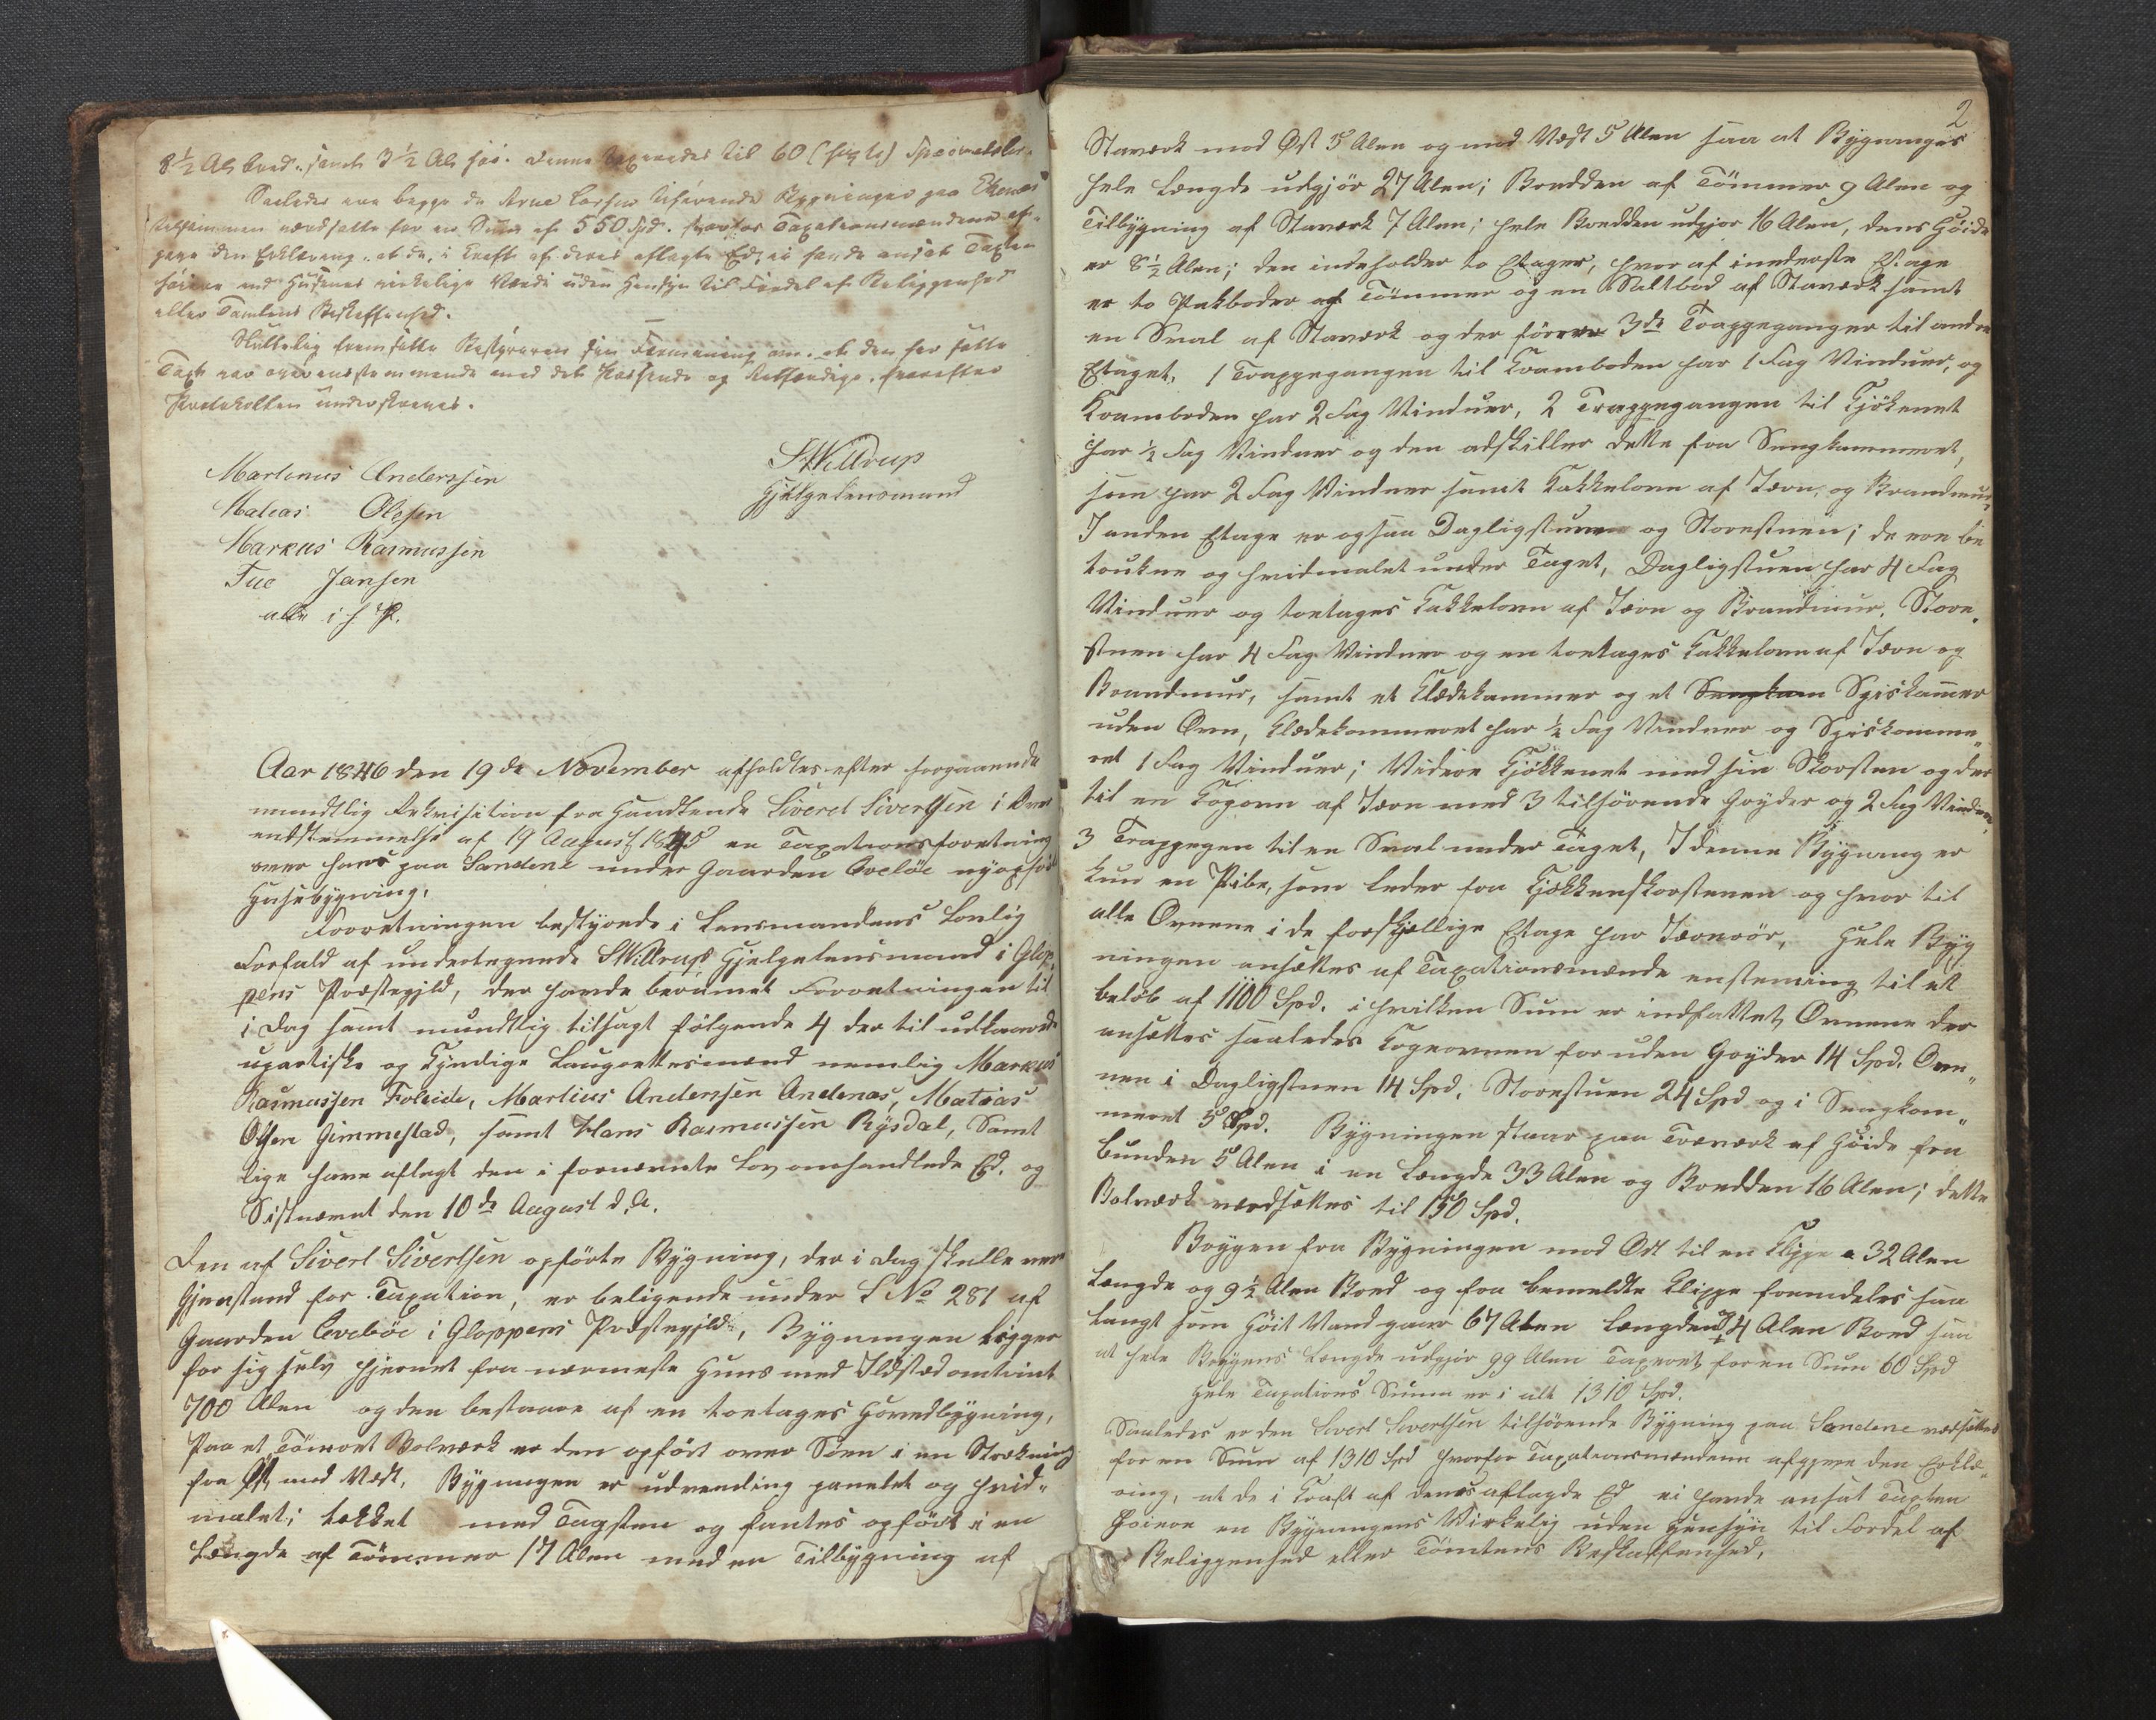 8½ Al. bred, samt 3½ Al. høi. Denne taxeredes til 60 (sexti) Speciedaler.
Saaledes ere begge de Arne Larsen tilhørende Bygninger paa Ekenæs
tilsammen værdsatte for en Sum af 550 Spd. hvorfor Taxationsmændene af-
gave den Erklæring, at de, i Kraft af deres aflagte Ed, ei havde ansat Taxten
høiere end Husenes virkelige Værdi uden Hensyn til Fordel af Beliggenhed
eller Tomtens Beskaffenhed.
Sluttelig fremsatte Bestyreren sin Formening om, at den her satte
Taxt var overensstemmende med det Passende og Retfærdige, hvorefter
Protokollen underskreves.
Martinus Anderssen
Matias Olsen
Markus Rasmussen
Tue Jansen
alle i h P.
SWilldrup
Hjelpelensmand
Aar 1846 den 19de November afholdtes efter foregaaende
mundtlig Rekvisition fra Handlende Siverd Sivertsen i Over
enstemmelse af 19 August 1845 en Taxationsforretning
over hans paa Sandene under Gaarden Eveböe nyopført
Husebygning.
Forretningen bestyrede i Lensmandens Lovlig
Forfald af undertegnede SWilldrup Hjelpelensmand i Glop,
pens Præstegjeld, der havde berammet Forretningen til
i Dag samt mundtlig tilsagt følgende 4 der til udkaarede
upartiske og kyndige Laugrettesmænd nemlig Markus
Rasmussen Foleide, Martius Anderssen Andenæs, Matias
Olsen Gimmestad, samt Hans Rasmussen Rysdal, Samt
lige have aflagt den i fornævnte Lov omhandlede Ed. og
Sistnævnt den 10de August d. A.
Den af Sivert Sivertsen opførte Bygning, der i dag skulle være
Gjenstand for Taxation, er beligende under L No 281 af
Gaarden Eveböe i Gloppens Præstegjeld, Bygningen ligger
for sig selv fjernet fra nærmeste Huus med Ildsted omtrint
700 Alen og den bestaaer af en toetages Hovedbygning,
Paa et Tømret Bolværk er den opført over Søen i en Strækning
fra Øst mod Vest, Bygningen er udvending panelet og hvid-
malet; tekket med Tagsten og fantes opført i en
Længde af Tømmer 17 Alen med en Tilbygning af
2
Staværk mod Øst 5 Alen og mod Vest 5 Alen saa at Bygningens
hele Længde udgjør 27 Alen; Bredden af Tømmer 9 Alen og
Tilbygning af Staværk 7 Alen; hele Bredden udgjør 16 Alen, dens Høide
er 8½ Alen; den indeholder to Etager, hvor af inederste Etage
er to Pakboder af Tømmer og en Saltbod af Staværk samt
en Sval af Staværk og der fører 3de Trappeganger til anden
Etage, 1 Trappegangen til Kramboden har 1 Fag Vinduer, og
Kramboden har 2 Fag Vinduer, 2 Trappegangen til Kjökenet
har ½ Fag Vinduer og den adskiller dette fra Sengkammeret,
som har 2 Fag Vinduer samt Kakkelovn af Jern, og Brandmur,
I anden Etage er ogsaa Dagligstuen og Storestuen; de ere be
trukne og hvidmalet under Taget, Dagligstuen har 4 Fag
Vinduer og toetages Kakkelovn af Jern og Brandmur. Store,
stuen har 4 Fag Vinduer og en toetages Kakkelovn af Jern og
Brandmur, samt et Klædekammer og et Sengkam Spiskammer
uden Ovn, Klædekammeret har ½ Fag Vinduer og Spiskamme
ret 1 Fag Vinduer; Videre Kjökkenet med sin Skorsten og der
til en Kogovn af Jern med 3 tilhörende Gryder og 2 Fag Vinduer,
3 Trappegen til en Sval under Taget, I denne Bygning er
kun en Pibe, som leder fra Kjökkenskorstenen og hvor til
alle Ovnene i de forskjællige Etage har Jernrör, Hele Byg
ningen ansættes af Taxationsmænde enstemmig til et
beløb af 1100 Spd. i hvilken Sum er indfattet Ovnene der
ansættes saaledes Kogeovnen foruden Gryder 14 Spd. Ovn
nen i Dagligstuen 14 Spd, Storestuen 24 Spd og i Sengkam
meret 5 Spd. Bygningen staar paa Træværk af Høide fra
bunden 5 Alen i en Længde 33 Alen og Bredden 16 Alen; dette
Bolværk værdsættes til 150 Spd.
Bryggen fra Bygningen mod Öst til en Klippe a 32 Alen
Længde og 9½ Alen Bred og fra bemeldte Klippe fremdeles saa
langt som Höit Vand gaar 67 Alen Længden 4 Alen Bred saa
at hele Bryggens Længde udgjör 99 Alen Taxeret for en Sum 60 Spd
hele Taxations Summa er i alt 1310 Spd.
Saaledes er den Sivert Sivertsen tilhørende Bygning paa Sandene værdsættes
for en Sum af 1310 Spd hvorfor Taxationsmændene afgjere den Erklæ,
ring, at de i Kraft af deres aflagde Ed ei havde ansat Taxten
høiere en Bygningens Virkelig uden hensyn til Fordel af
Beliggenhed eller Tomtens Beskaffenhed.